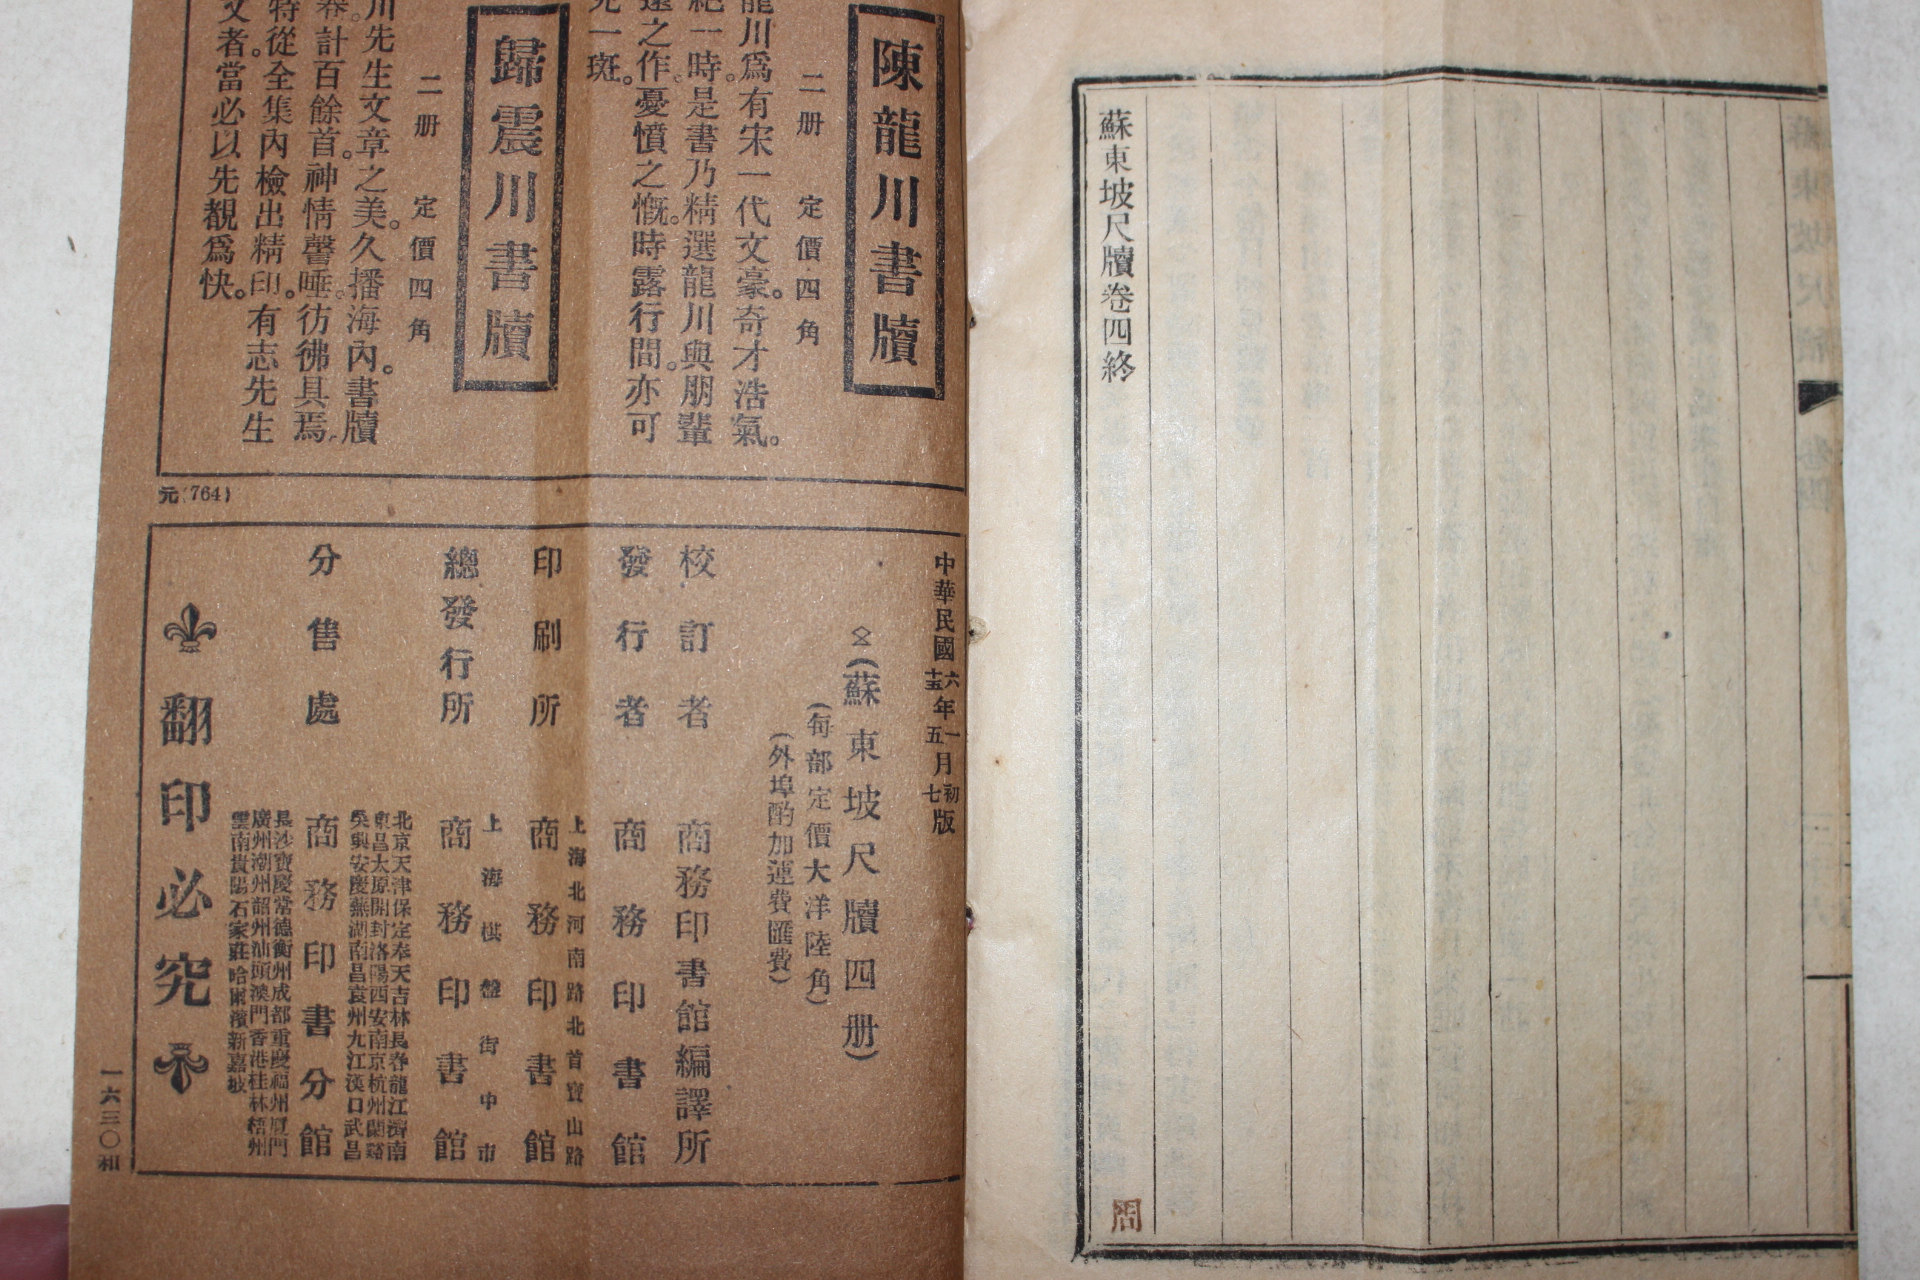 蘇東坡尺牘卷四終
周
陳龍川書牘
二册　定價四角
龍川爲有宋一代文豪。奇才浩氣。
一時。是書乃精選龍川與朋輩
之作。憂憤之慨。時露行間。亦可
一斑。
歸震川書牘
二册　定價四角
川先生文章之美。久播海內。書牘
計百餘首。神情馨唾。彷彿具焉。
特從全集內檢出精印。有志先生
文者。當必以先覩爲快。
元(764)
中華民國六年一月初版
十五年五月七版
(蘇東坡尺牘四册)
(每部定價大洋陸角)
(外埠酌加運費匯費)
校訂者　商務印書館編譯所
發行者　商務印書館
印刷所　上海北河南路北首寶山路　商務印書館
總發行所　上海棋盤街中市　商務印書館
分售處　商務印書分館
北京天津保定奉天吉林長春龍江濟南
東昌太原開封洛陽西安南京杭州蘭谿
吳興安慶蕪湖南昌袁州九江漢口武昌
長沙寶慶常德衡州成都重慶福州廈門
廣州潮州韶州汕頭澳門香港桂林梧州
雲南貴陽石家莊哈爾濱新嘉坡
翻印必究
一六三〇和